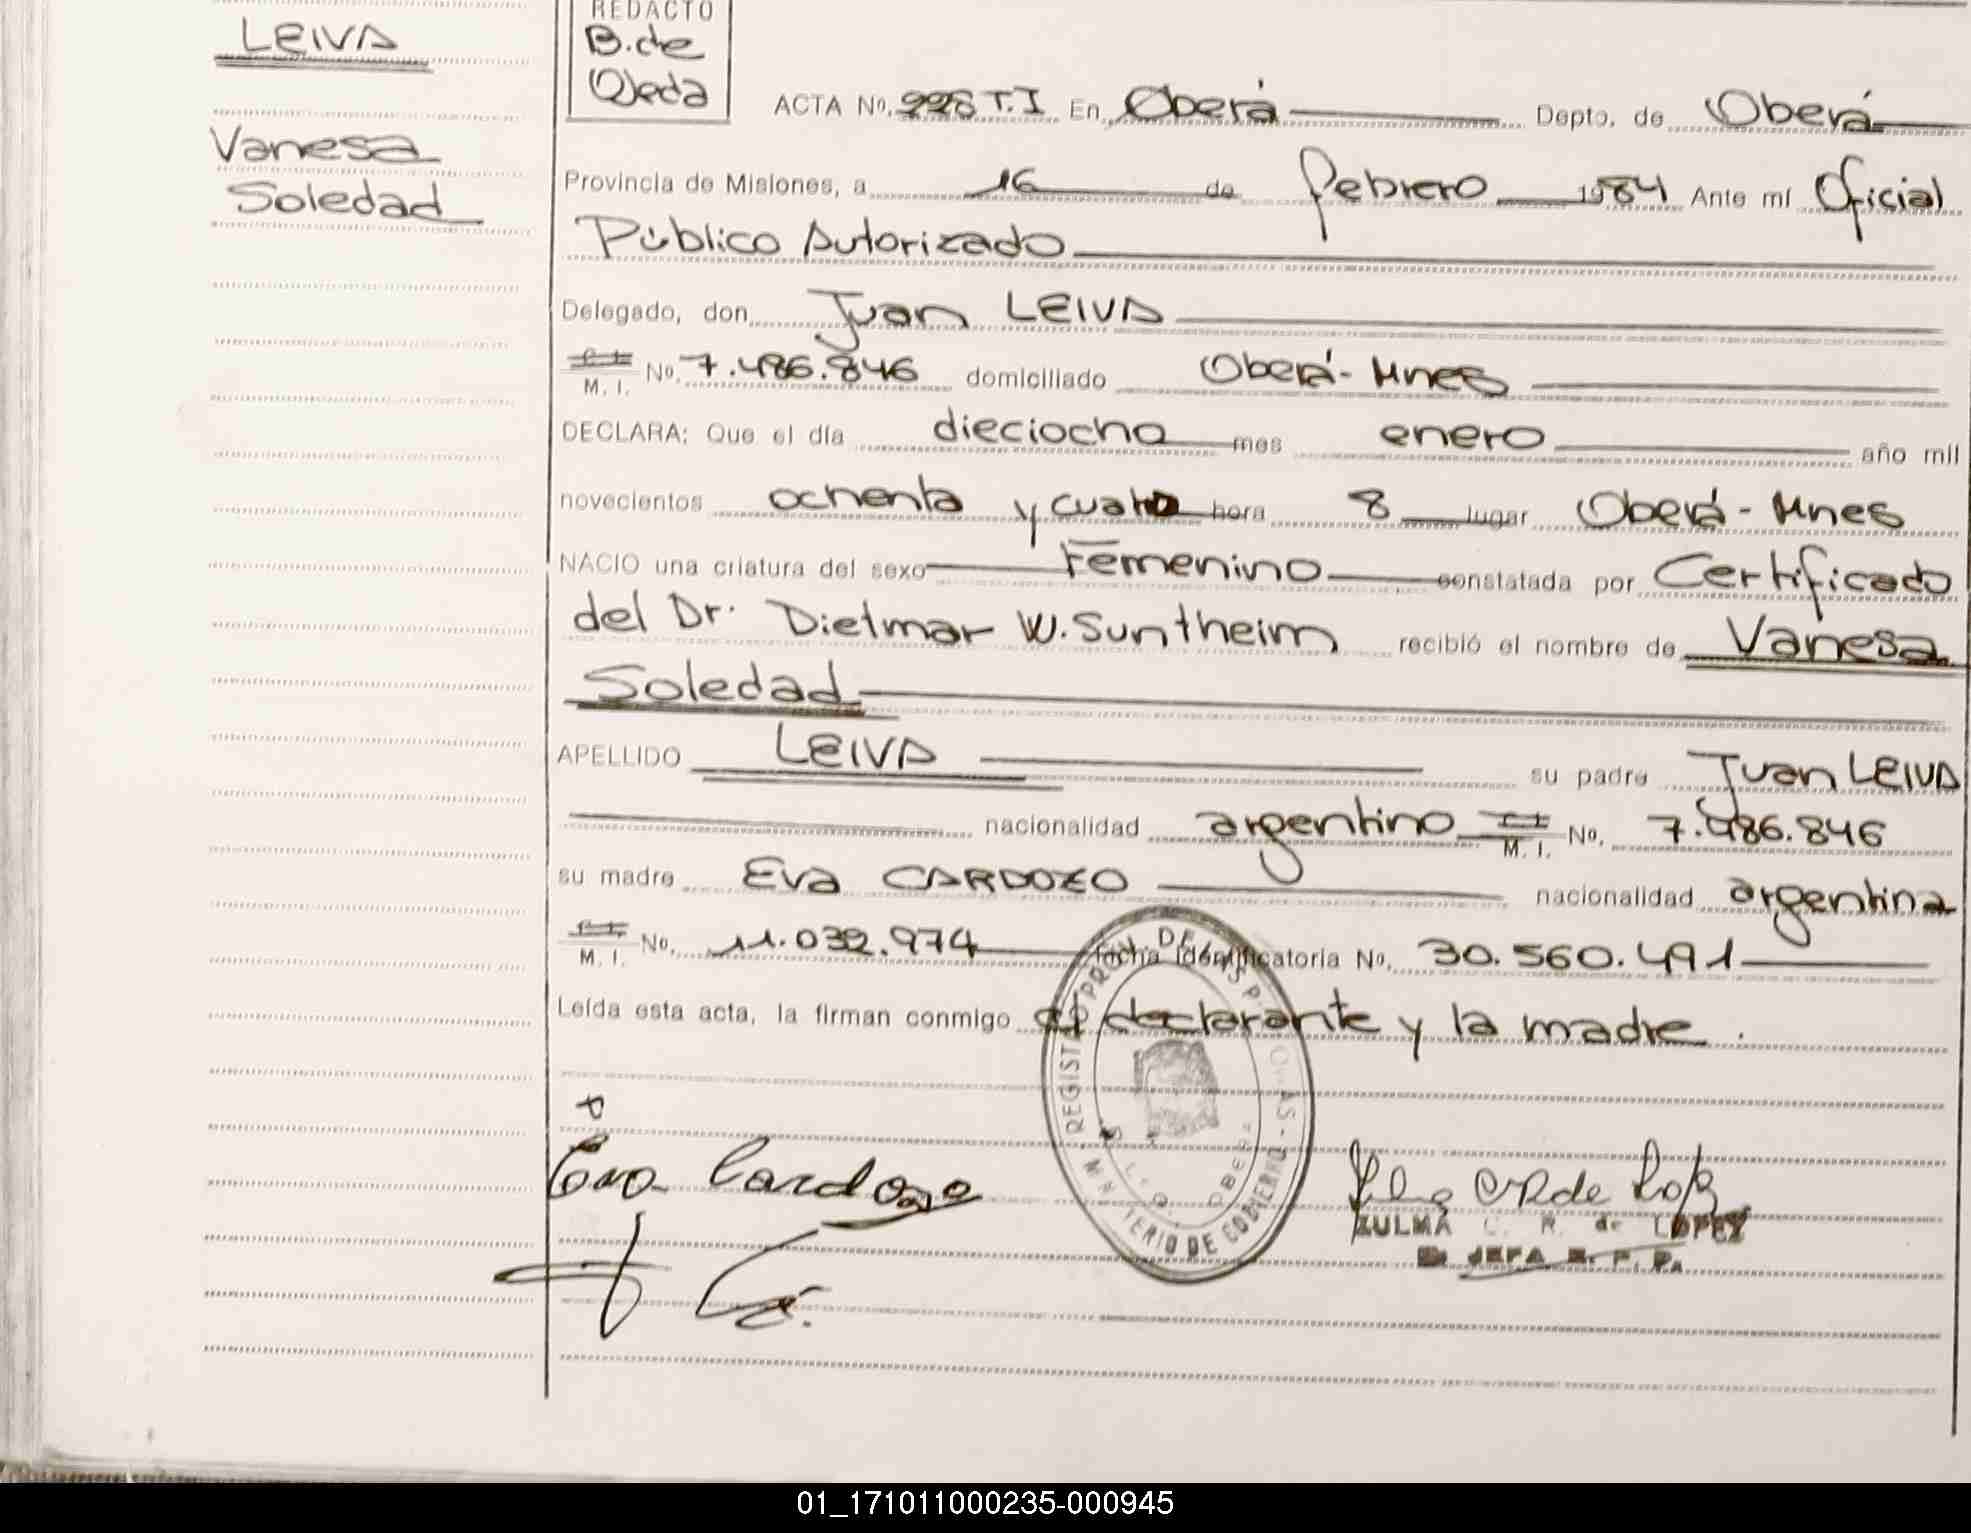 LEIVA
Vanesa
Soledad
REDACTO
B. de
Ojeda
ACTA No. 228 T. I En Oberá Depto. de Oberá
Provincia de Misiones, a 16 de febrero 1984 Ante mí Oficial
Público Autorizado
Delegado, don Juan LEIVA
M. I. No. 7.486.846 domiciliado Oberá - Mnes
DECLARA: Que el día dieciocho mes enero año mil
novecientos ochenta y cuatro hora 8 lugar Oberá - Mnes
NACIO una criatura del sexo Femenino constatada por Certificado
del Dr. Dietmar W. Suntheim recibió el nombre de Vanesa
Soledad
APELLIDO LEIVA su padre Juan LEIVA
nacionalidad argentino M. I. No. 7.486.846
su madre Eva CARDOZO nacionalidad argentina
M. I. No. 11.032.974 ficha identificatoria No. 30.560.491
Leída esta acta, la firman conmigo el declarante y la madre.
Eva Cardozo
ZULMA C. R. de LOPEZ
JEFA R. P. P.
MINISTERIO DE GOBIERNO
REGISTRO PROV. DE LAS PERSONAS
OBERA
01_171011000235-000945